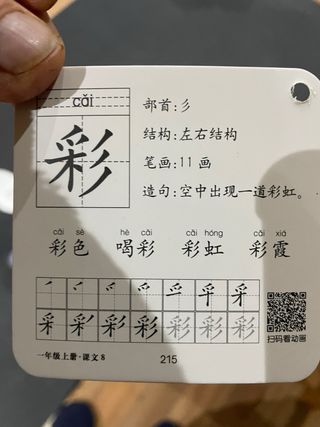 cǎi
彩
部首:彡
结构:左右结构
笔画:11 画
造句:空中出现一道彩虹。
cǎi sè hè cǎi cǎi hóng cǎi xiá
彩色 喝彩 彩虹 彩霞
彩 彩 彩 彩 彩 彩
扫码看动画
一年级上册·课文 8
215